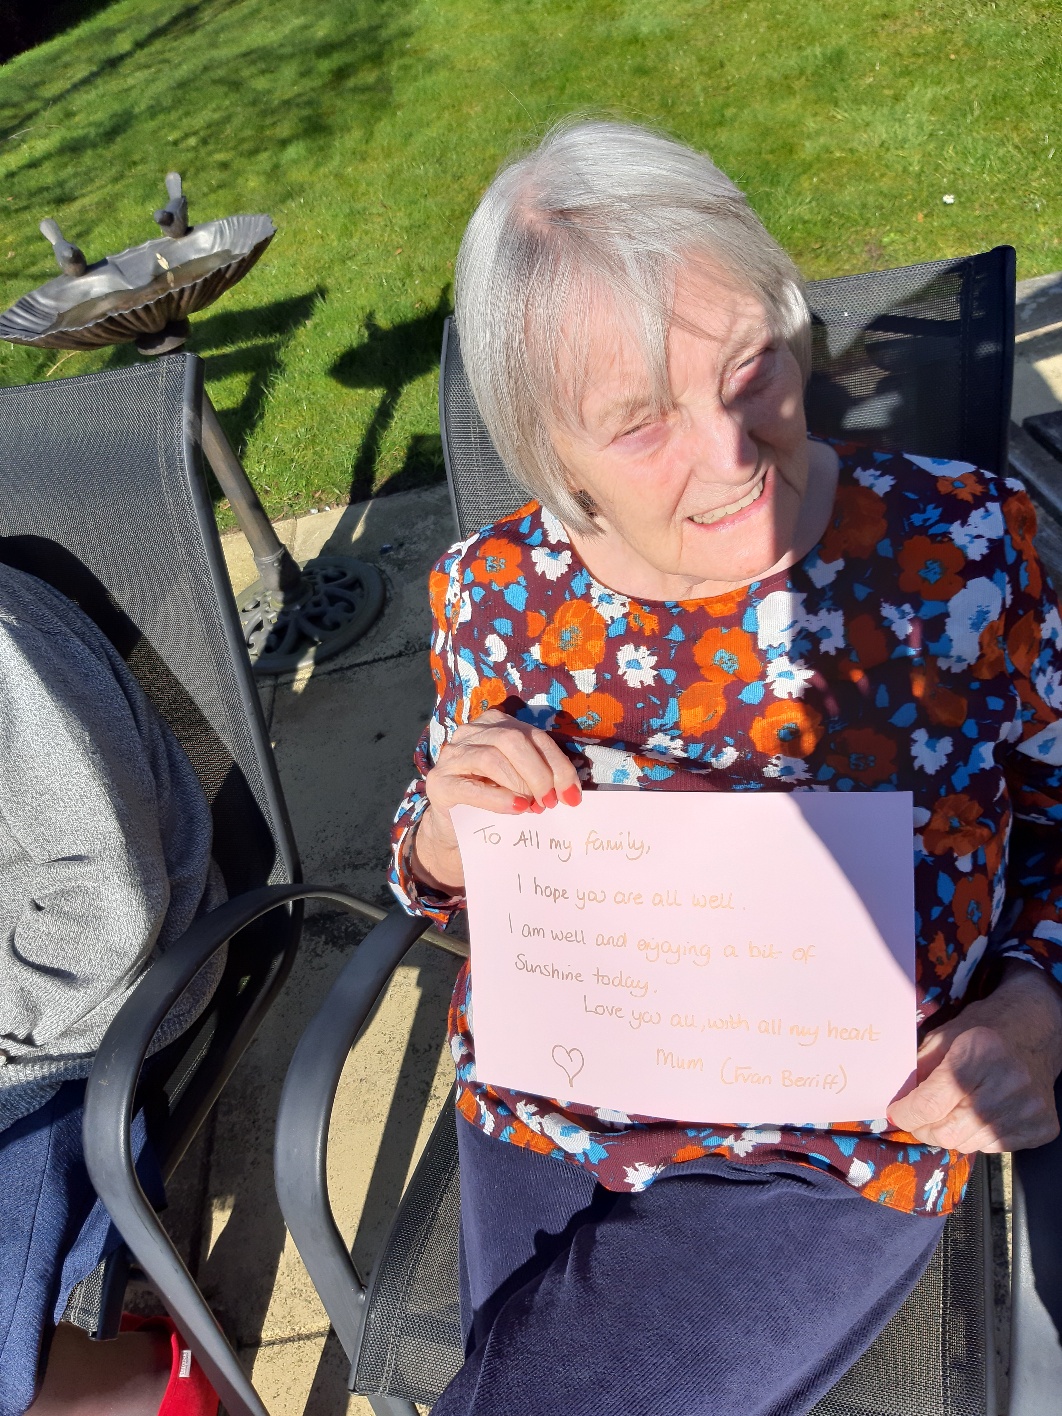 To All my family,
I hope you are all well.
I am well and enjoying a bit of
Sunshine today.
Love you all, with all my heart
Mum ( Berriff)